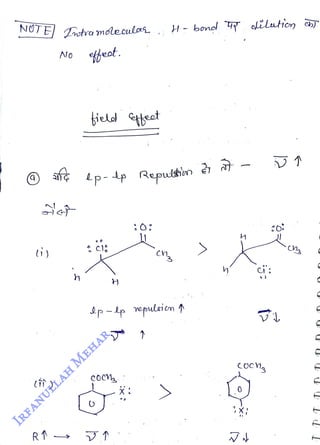 NOTE Intramolecular H-bond पर dilution का
No effect.
field effect
(a) यदि lp-lp Repulsion हो तो - ν̄ ↑
जैसे
(i) :Cl: :O: CH₃ H H > H :O: CH₃ H Cl:
lp-lp repulsion ↑ ν̄ ↓
ν̄ ↑
(ii) COCH₃ X: > COCH₃ :X:
R↑ → ν̄ ↑ ν̄ ↓
IRFANULLAH MEHAR